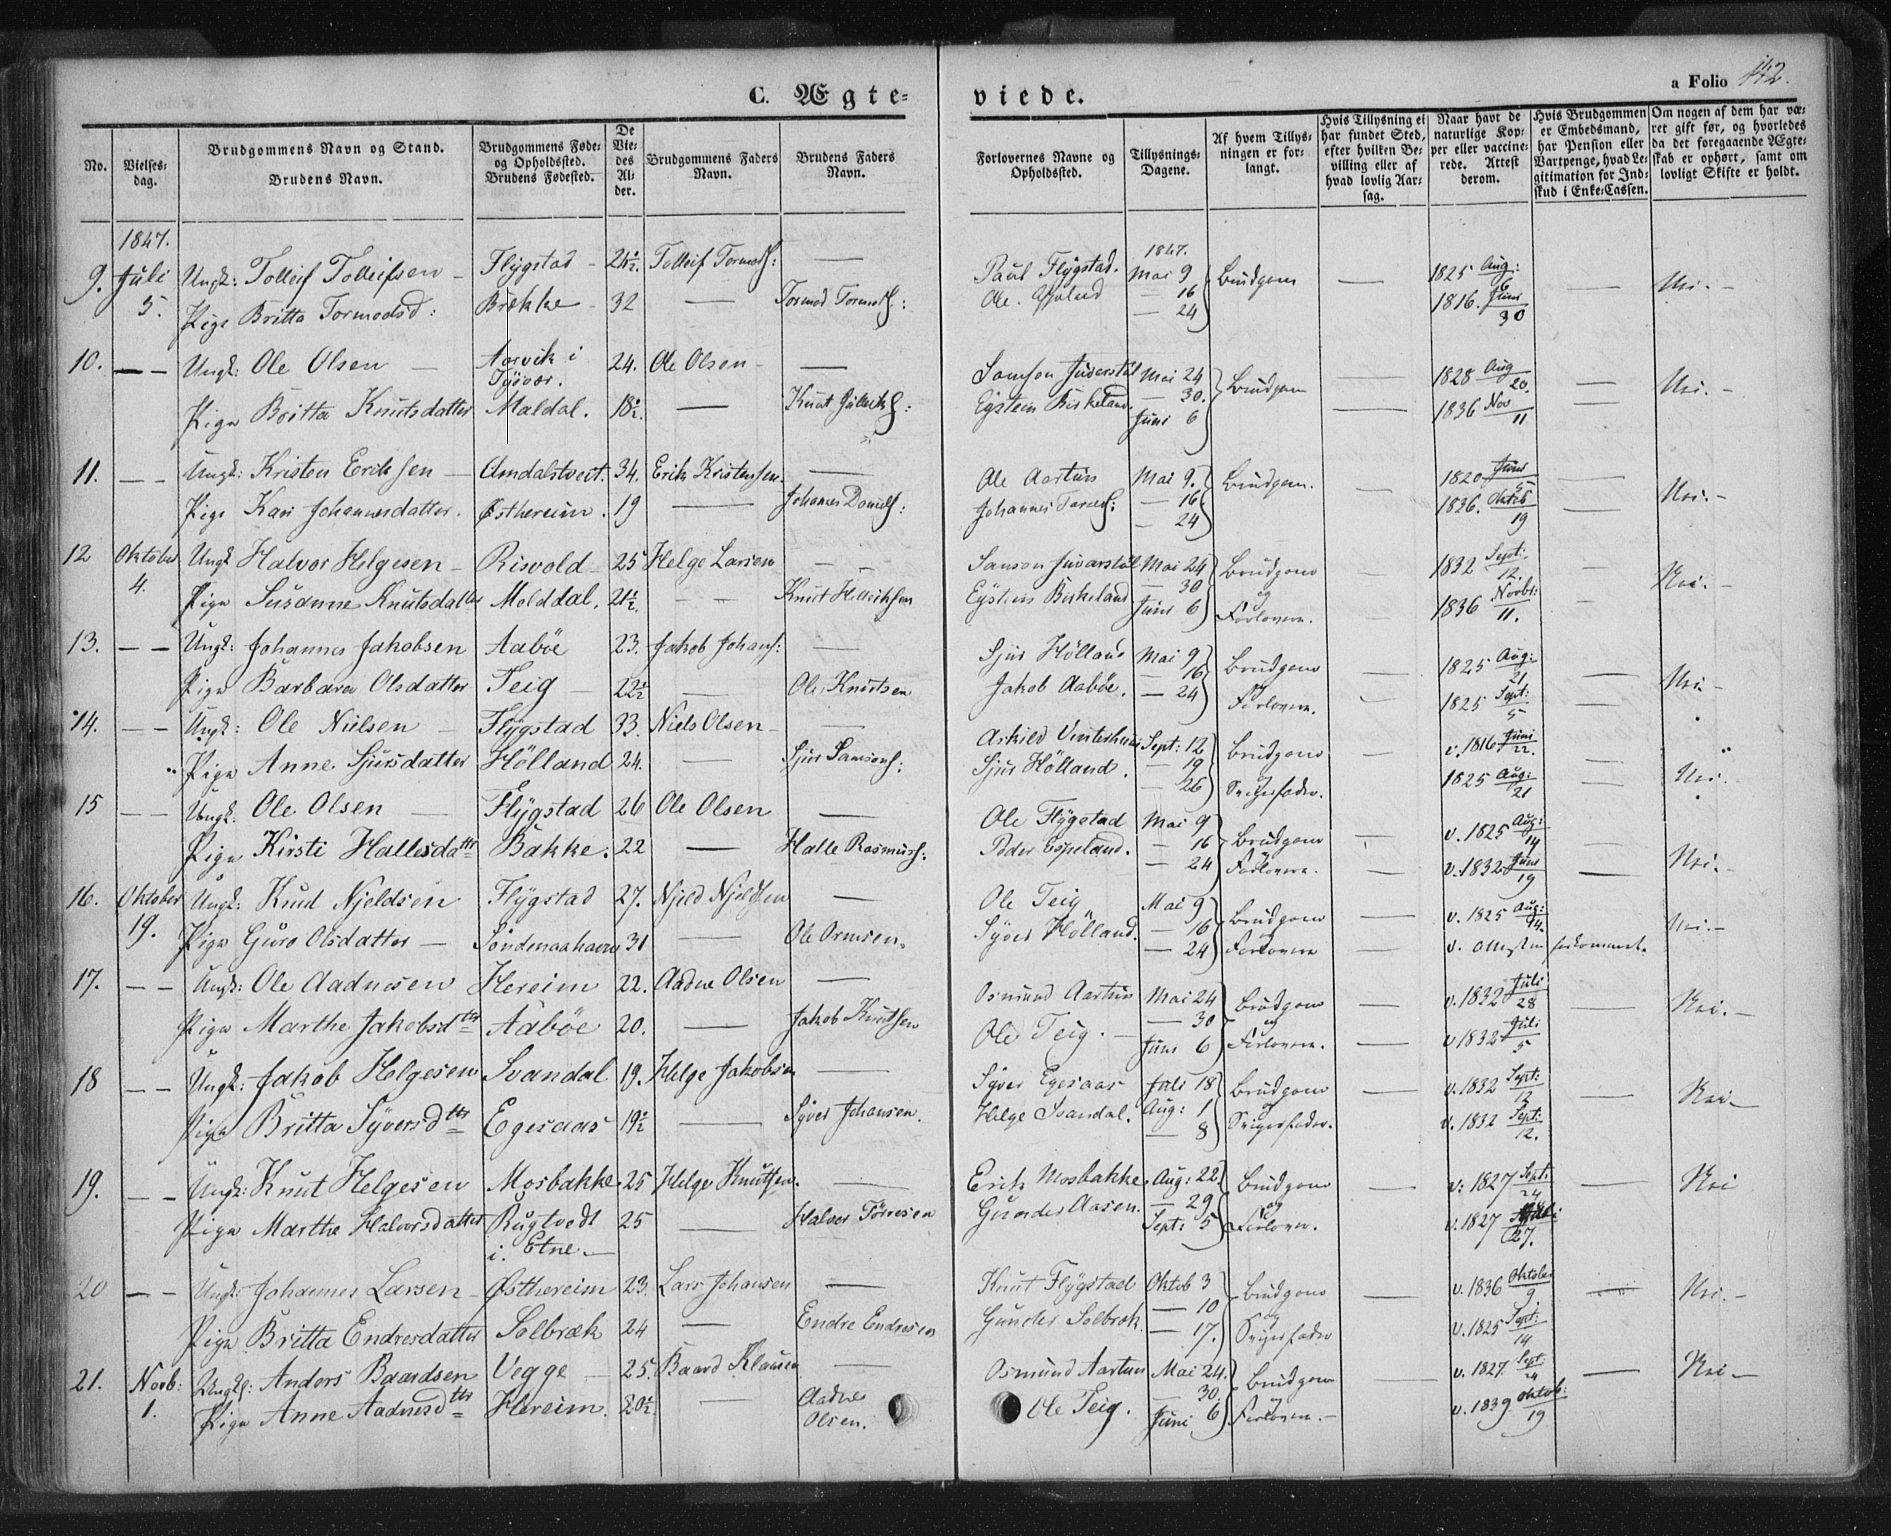 C. Ægte- viede.
a Folio 142.
No.
Vielses-dag.
Brudgommens Navn og Stand.
Brudens Navn.
Brudgommens Føde- og Opholdssted.
Brudens Fødested.
De Vie-des Al-der.
Brudgommens Faders Navn.
Brudens Faders Navn.
Forlovernes Navne og Opholdssted.
Tillysnings-Dagene.
Af hvem Tillys-ningen er for-langt.
Hvis Tillysning ei har fundet Sted, efter hvilken Be-villing eller af hvad lovlig Aar-sag.
Naar havt de naturlige Kop-per eller vaccine-rede. Attest derom.
Hvis Brudgommen er Embedsmand, har Pension eller Vartpenge, hvad Le-gitimation for Ind-skud i Enke-Cassen.
Om nogen af dem har væ-ret gift før, og hvorledes da det foregaaende Ægte-skab er ophørt, samt om lovligt Skifte er holdt.
1847. 1847.
9. Juli 5. Ungk: Tolleif Tolleifsen – Flÿgstad – 24½. Tolleif Tormods: — Paul Flÿgstad. Mai 9 Brudgom — 1825 Aug: 6 — Nei. –
Pige Britta Tormodsd: Brække – 32 — Tormod Tormods: Ole — 16 — 24 1816. Juni 30
10. – – Ungk: Ole Olsen — Aarvik i Tÿsvær. 24. Ole Olsen – — Mai 24 Brudgom — 1828 Aug 20. — Nei. –
Pige Britta Knutsdatter Maldal. 18½. — Knut Eÿstein Birkeland. — 30. Juni 6 — 1836 Nov 11
11. – – Ungk: Kristen Eriksen – Amdalstveit. 34. Erik Kristensen. — Ole Aartun Mai 9. Brudgom. — 1820 Juni 5 — Nei. –
Pige Kari Johannesdatter. Østhereim. 19 — Johannes Daniels: Johannes — 16 — 24 1836. Oktob 19
12 Oktober 4. Ungk Halvor Helgesen – Risvold – 25 Helge Larsen – – Samson Mai 24 Brudgom og — 1832 Sept: 12. — Nei. –
Pige Susanne Knutsdatter Molddal. 21½. – – Knut Eÿstein Birkeland — 30 Juni 6 Forlovern. 1836 Novbr: 11.
13. – – Ungk: Johannes Jakobsen Aabøe 23. Jakob Johans: — Sjur Hölland Mai 9 Brudgom og — 1825 Aug: 21 — Nei –
Pige Barbara Olsdatter Teig – 22½ — Ole Knutsen Jakob Aabøe. — 16 — 24 Forlovern. 1825 Sept: 5
14. – – Ungk: Ole Nielsen – Flÿgstad 33. Niels Olsen – — Askild Vinterhuus Sept: 12 Brudgom og — v. 1816 Juni 22. —
Pige Anne Sjursdatter Hölland 24. — Sjur Samsons: Sjur Hölland. — 19 — 26 Svigerfader. 1825 Aug: 21 — Nei. –
15 – – Ungk: Ole Olsen — Flÿgstad 26 Ole Olsen — Ole Flÿgstad Mai 9 Brudgom og — v. 1825 Aug: 14 —
Pige Kirsti Hallesdatter Bakke. 22 — Halle Rasmuss: Peder Espeland. — 16 — 24 Forlovern. v. 1832 Juni 19 — Nei. –
16. Oktober 19. Ungk: Knud Njeldsen Flÿgstad 27. Njeld Njeldsen — Ole Teig Mai 9 Brudgom og — v. 1825 Aug: 14. — Nei. –
Pige Guro Olsdatter – Söndenaahavn 31 — Ole Ormsen. Sÿver Hölland. — 16 — 24 Forlovern v. Attesten forkommet.
17. – – Ungk: Ole Aadnesen Hereim 22. Aadne Olsen — Osmund Aartun Mai 24 Brudgom og — v. 1832 Juli 28 — Nei. –
Pige Marthe Jakobsdtr Aabøe 20. — Jakob Knutsen Ole Teig. – — 30 Juni 6 Forlovern. v. 1832 Juli 5
18 – – Ungk: Jakob Helgesen Svandal 19. Helge Jakobsen — Sÿver Egesaas Juli 18 Brudgom og — v. 1832 Sept: 12 — Nei –
Pige Britta Sÿversdtr Egesaas 19½ — Sÿver Johansen. Helge Svandal. Aug: 1 — 8 Svigerfader. v. 1832 Sept: 12.
19. – – Ungk: Knut Helgesen Mosbakke. 25 Helge Knutsen. — Erik Mosbakke. Aug: 22. Brudgom og — v: 1827 Sept: 24 — Nei
Pige Marthe Halvorsdatter Rugtvedt i Etne – 25 — Halvor Törresen Gunder Aasen. — 29 Sept: 5 Forlover. v. 1827 27.
20 – – Ungk: Johannes Larsen – Østhereim 23. Lars Johansen — Knut Flÿgstad Oktob 3 Brudgom og — v. 1836 Oktober 9 — Nei. –
Pige Britta Endresdatter Solbræk 24 — Endre Endresen Gunder Solbræk. — 10 — 17. Svigerfader v. 1825 Sept: 14
21. Novb: 1. Ungk: Anders Baardsen Vegge – 25. Baard Klausen — Osmund Aartun Mai 24. Brudgom og — v. 1827 Sept: 24 — Nei –
Pige Anne Aadnesdtr Hereim. 20½. — Aadne Olsen. Ole Teig. 30. Juni 6 Forlovern. – v. 1839 Oktob: 19